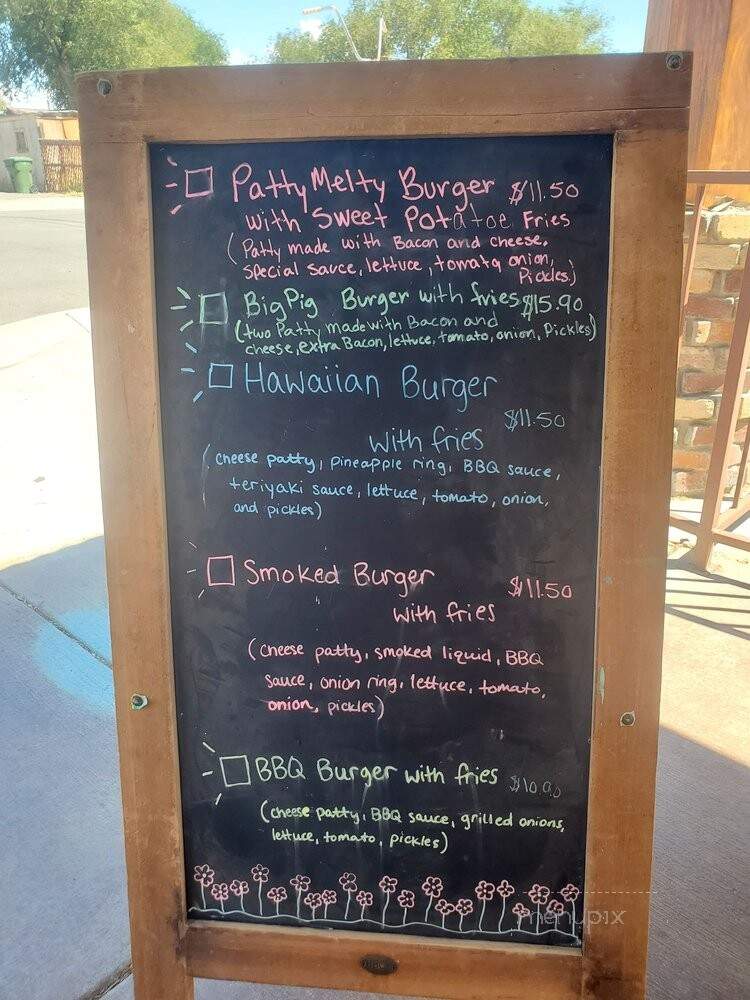 Patty Melty Burger $11.50
with Sweet Potatoe Fries
(Patty made with Bacon and cheese,
special sauce, lettuce, tomato onion,
Pickles)
BigPig Burger with fries $15.90
(two Patty made with Bacon and
cheese, extra Bacon, lettuce, tomato, onion, Pickles)
Hawaiian Burger
$11.50
with fries
(cheese patty, pineapple ring, BBQ sauce,
teriyaki sauce, lettuce, tomato, onion,
and pickles)
Smoked Burger $11.50
with fries
(cheese patty, smoked liquid, BBQ
sauce, onion ring, lettuce, tomato,
onion, pickles)
BBQ Burger with fries $10.90
(cheese patty, BBQ sauce, grilled onions,
lettuce, tomato, pickles)
menupix